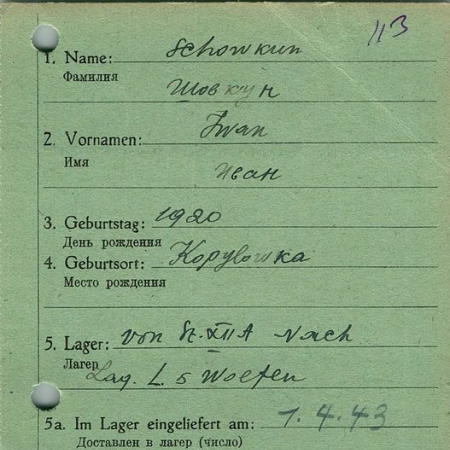 113
1. Name: Schowkun
Фамилия
Шовкун
2. Vornamen: Iwan
Имя
Иван
3. Geburtstag: 1920
День рождения
4. Geburtsort: Kopylowka
Место рождения
5. Lager: von St. XII A nach
Лагерь
Lag. L. 5
5a. Im Lager eingeliefert am: 1.4.43
Доставлен в лагерь (число)